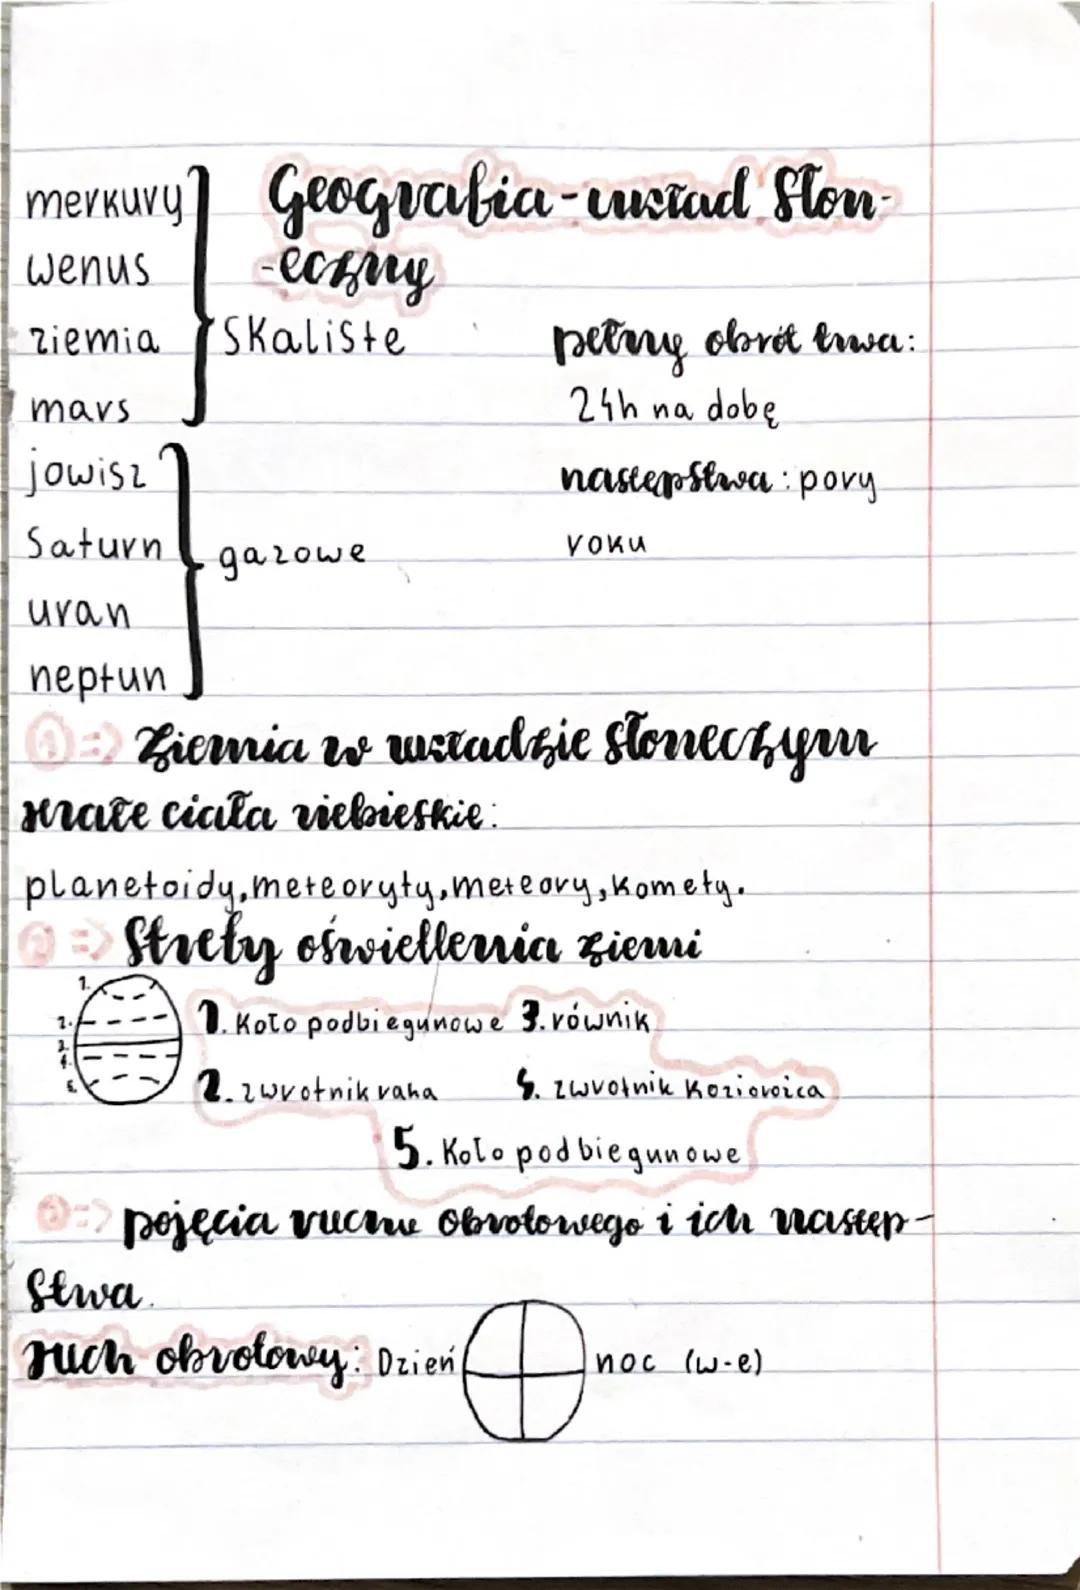 Geografia - układ Słon-
-eczny
merkury
wenus
ziemia
mars
Skaliste
jowisz
Saturn
uran
neptun
gazowe
pełny obrót trwa:
24h na dobę
następstwa: pory
roku
1 => Ziemia w układzie słoneczym
małe ciała niebieskie:
planetoidy, meteoryty, meteory, komety.
2 => Strefy oświetlenia ziemi
1.
2.
3.
4.
5.
1. Koło podbiegunowe 3. równik
2. zwrotnik raka 4. zwrotnik Koziorożca
5. Koło podbiegunowe
3 => pojęcia ruchu obrotowego i ich następ-
stwa.
ruch obrotowy: Dzień noc (w-e)